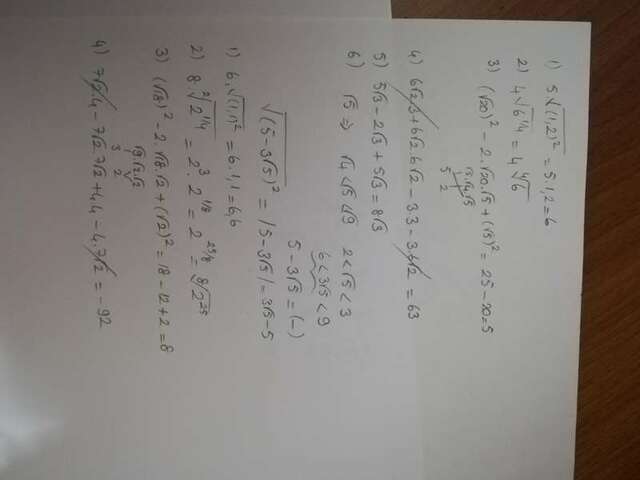 1) 5√(1,2)² = 5.1,2 = 6
2) 4√6^1/4 = 4 ∜6
3) (√20)² - 2.√20.√5 + (√5)² = 25 - 20 = 5
√5.√4.√5
5 2
4) 6√2.3 + 6√2.6√2 - 3.3 - 3.6√2 = 63
5) 5√3 - 2√3 + 5√3 = 8√3
6) √5 ⇒ √4 < √5 < √9 2 < √5 < 3
6 < 3√5 < 9
5 - 3√5 = (-)
√(5 - 3√5)² = |5 - 3√5| = 3√5 - 5
1) 6.√(1,1)² = 6.1,1 = 6,6
2) 8.²√2^1/4 = 2³.2^1/8 = 2^25/8 = ⁸√2²⁵
3) (√18)² - 2.√18.√2 + (√2)² = 18 - 12 + 2 = 8
√9.√2.√2
3 2
4) 7√2.4 - 7√2.7√2 + 4.4 - 4.7√2 = -92